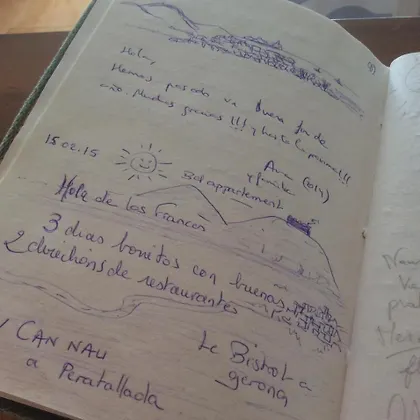 Hola,
Hemos pasado un buen fin de
año. Muchas gracias !!! y hasta la proxima!!!
Ana (Oly)
y familia
15.02.15
Bel appartement
Hola de los Franceses
3 dias bonitos con buenas
2 direichons de restaurantes
Le Bistrot a
gerona
Y CAN NAU
a Peratallada